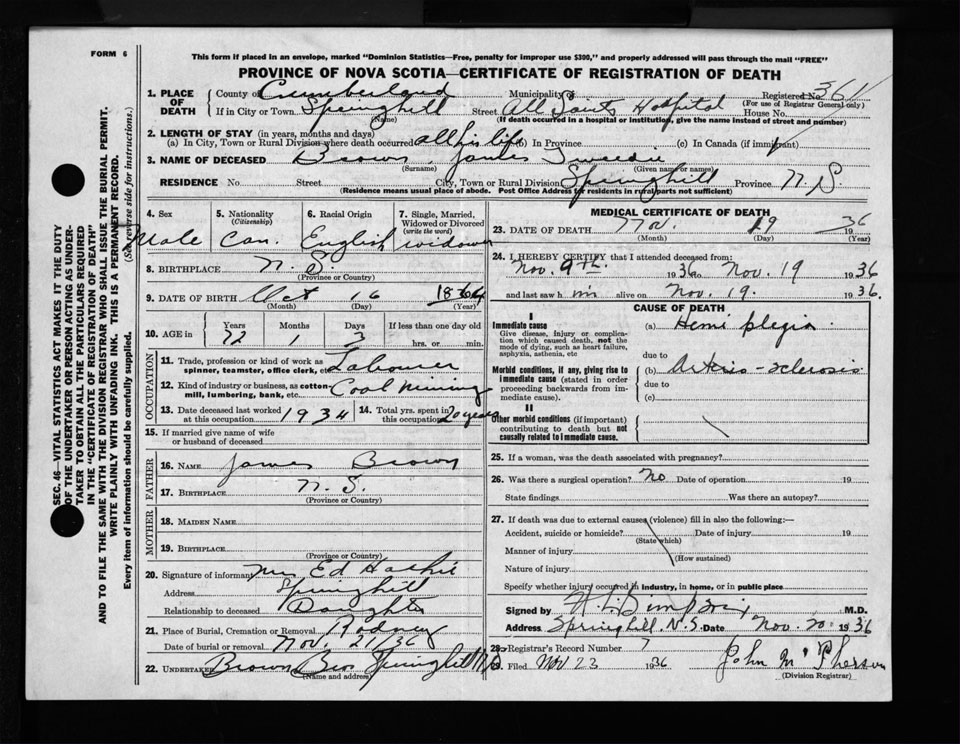 FORM 6
This form if placed in an envelope, marked "Dominion Statistics—Free, penalty for improper use $300," and properly addressed will pass through the mail "FREE"
PROVINCE OF NOVA SCOTIA—CERTIFICATE OF REGISTRATION OF DEATH
SEC. 46—VITAL STATISTICS ACT MAKES IT THE DUTY
OF THE UNDERTAKER OR PERSON ACTING AS UNDER-
TAKER TO OBTAIN ALL THE PARTICULARS REQUIRED
IN THE "CERTIFICATE OF REGISTRATION OF DEATH"
AND TO FILE THE SAME WITH THE DIVISION REGISTRAR WHO SHALL ISSUE THE BURIAL PERMIT.
WRITE PLAINLY WITH UNFADING INK. THIS IS A PERMANENT RECORD.
Every item of information should be carefully supplied. (See reverse side for instructions.)
1. PLACE OF DEATH County of Cumberland Municipality of Registered No. 361
(For use of Registrar General only)
If in City or Town Springhill Street All Saints Hospital House No.
(Name) (If death occurred in a hospital or institution, give the name instead of street and number)
2. LENGTH OF STAY (in years, months and days)
(a) In City, Town or Rural Division where death occurred all his life (b) In Province (c) In Canada (if immigrant)
3. NAME OF DECEASED Brown, James Tweedie
(Surname) (Given name or names)
RESIDENCE No. Street City, Town or Rural Division Springhill Province N.S.
(Residence means usual place of abode. Post Office Address for residents in rural parts not sufficient)
4. Sex Male
5. Nationality (Citizenship) Can.
6. Racial Origin English
7. Single, Married, Widowed or Divorced (write the word) widower
8. BIRTHPLACE N.S.
(Province or Country)
9. DATE OF BIRTH Oct 16 1864
(Month) (Day) (Year)
10. AGE in Years 72 Months 1 Days 3 If less than one day old hrs. or min.
OCCUPATION
11. Trade, profession or kind of work as spinner, teamster, office clerk, etc. Labourer
12. Kind of industry or business, as cotton mill, lumbering, bank, etc. Coal Mining
13. Date deceased last worked at this occupation 1934
14. Total yrs. spent in this occupation 20 years
15. If married give name of wife or husband of deceased
FATHER
16. NAME James Brown
17. BIRTHPLACE N.S.
(Province or Country)
MOTHER
18. MAIDEN NAME
19. BIRTHPLACE
(Province or Country)
20. Signature of informant Mrs Ed
Address Springhill
Relationship to deceased Daughter
21. Place of Burial, Cremation or Removal Rodney
Date of burial or removal Nov. 21/36
22. UNDERTAKER Brown Bros Springhill
(Name and address)
MEDICAL CERTIFICATE OF DEATH
23. DATE OF DEATH Nov. 19 1936
(Month) (Day) (Year)
24. I HEREBY CERTIFY that I attended deceased from:
Nov. 9th. 1936 to Nov. 19 1936
and last saw him alive on Nov. 19. 1936.
CAUSE OF DEATH
I
Immediate cause
Give disease, injury or complication which caused death, not the mode of dying, such as heart failure, asphyxia, asthenia, etc
(a) Hemi plegia
due to
Morbid conditions, if any, giving rise to immediate cause (stated in order proceeding backwards from immediate cause).
(b) Arterio-sclerosis
due to
(c)
II
Other morbid conditions (if important) contributing to death but not causally related to immediate cause.
25. If a woman, was the death associated with pregnancy?
26. Was there a surgical operation? no Date of operation 19
State findings Was there an autopsy?
27. If death was due to external causes (violence) fill in also the following:—
Accident, suicide or homicide? Date of injury 19
(State which)
Manner of injury
(How sustained)
Nature of injury
Specify whether injury occurred in industry, in home, or in public place
Signed by H.L. Simpson M.D.
Address Springhill, N.S. Date Nov. 20. 1936
28. Registrar's Record Number
29. Filed Nov 23 1936 John McPherson
(Division Registrar)